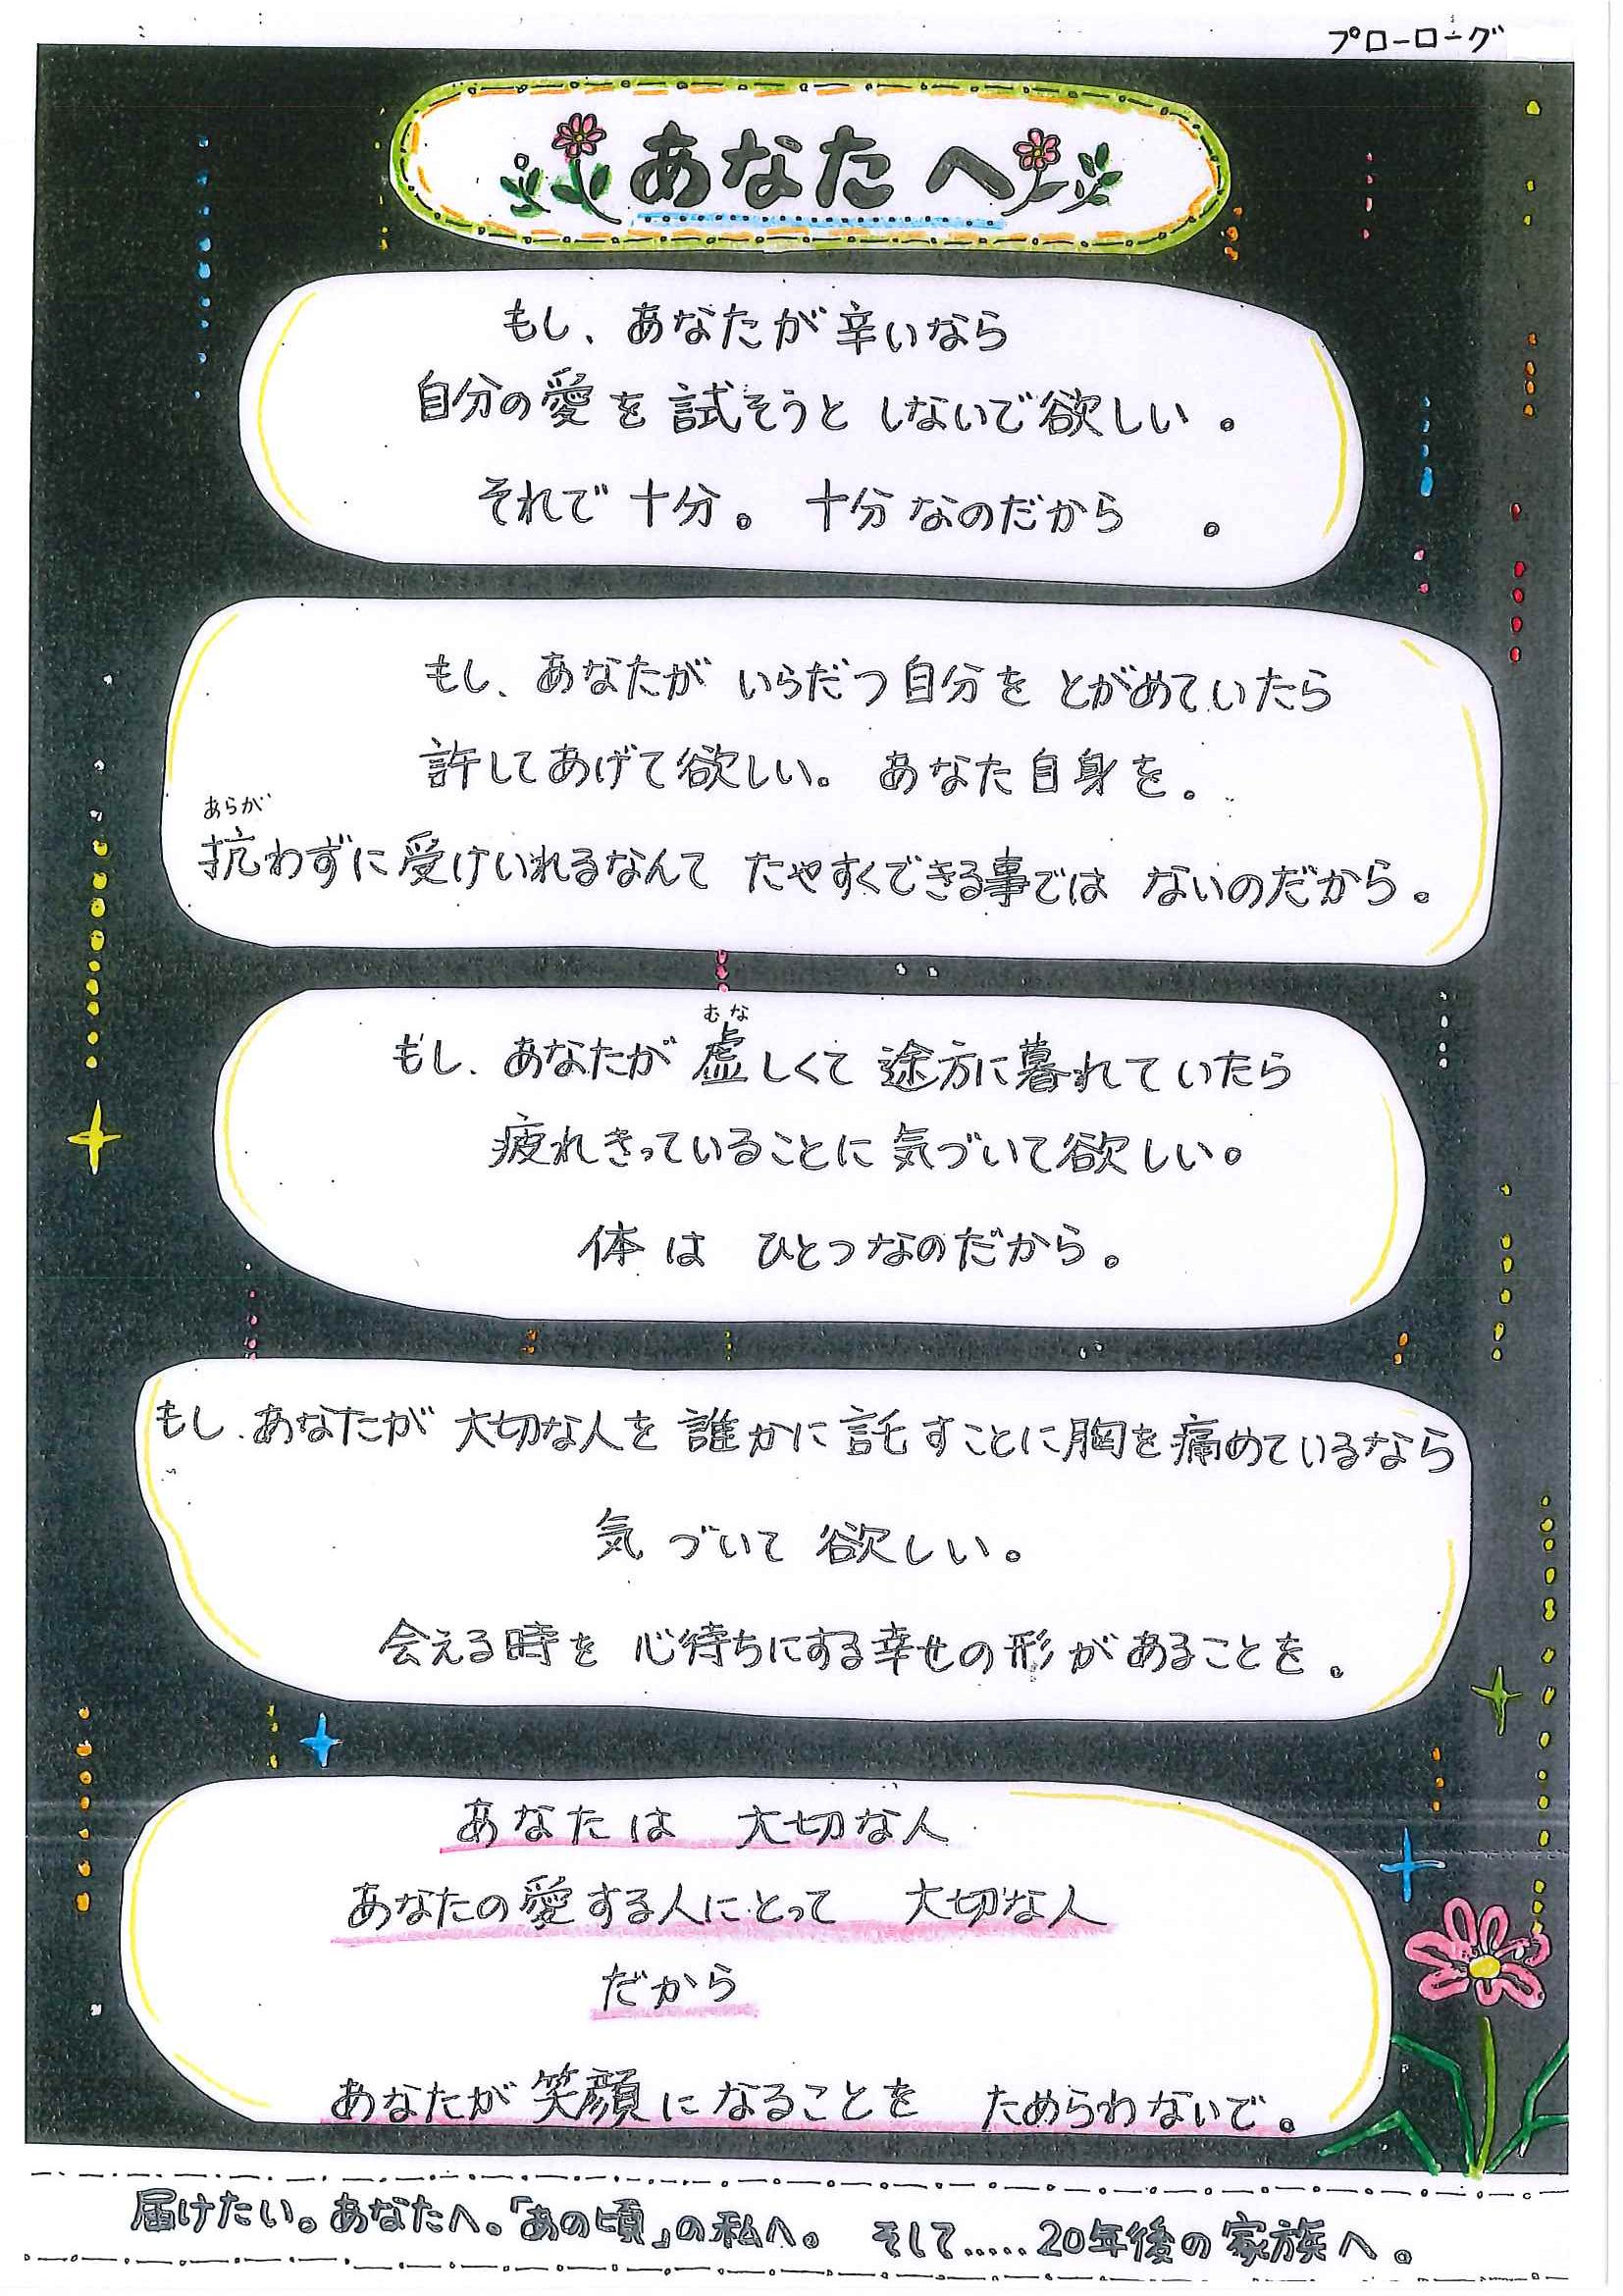 プローローグ
あなたへ
もし、あなたが辛いなら
自分の愛を試そうとしないで欲しい。
それで十分。十分なのだから。
もし、あなたがいらだつ自分をとがめていたら
許してあげて欲しい。あなた自身を。
あらが
抗わずに受けいれるなんてたやすくできる事ではないのだから。
むな
もし、あなたが虚しくて途方に暮れていたら
疲れきっていることに気づいて欲しい。
体はひとつなのだから。
もし、あなたが大切な人を誰かに託すことに胸を痛めているなら
気づいて欲しい。
会える時を心待ちにする幸せの形があることを。
あなたは大切な人
あなたの愛する人にとって大切な人
だから
あなたが笑顔になることをためられわないで。
届けたい。あなたへ。「あの頃」の私へ。そして.....20年後の家族へ。